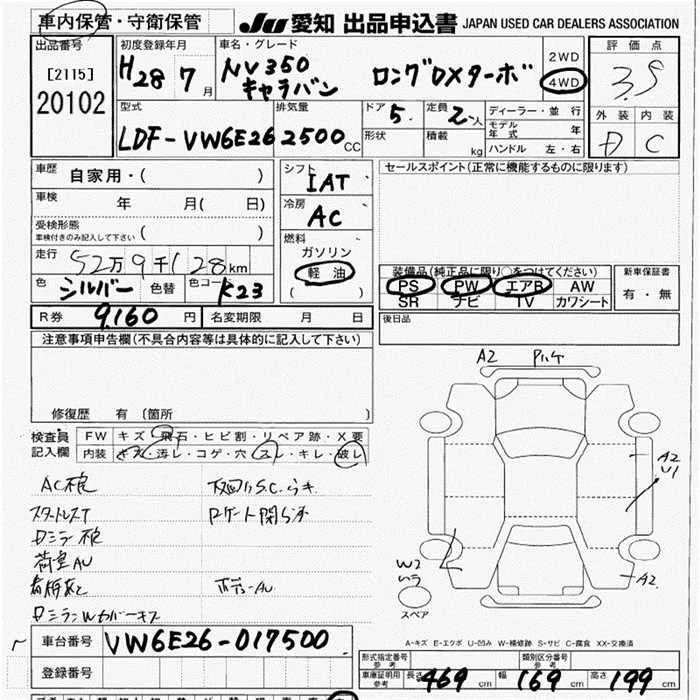 車内保管・守衛保管
JU 愛知 出品申込書 JAPAN USED CAR DEALERS ASSOCIATION
出品番号
[2115]
20102
初度登録年月
H28 7月
車名・グレード
NV350
キャラバン ロングDXターボ
2WD
4WD
評価点
3.5
外装 内装
D C
型式
LDF-VW6E26
排気量
2500CC
ドア
5
形状
定員
2人
積載 kg
ディーラー・並行
モデル年式 年
ハンドル 左・右
車歴
自家用・( )
車検
年 月( 日)
受検形態
車検付きのみ記入して下さい ( )
走行
52万9千128km
色 シルバー 色替 色コード K23
シフト
IAT
冷房
AC
燃料
ガソリン
軽油
( )
セールスポイント(正常に機能するものに限ります)
装備品(純正品に限り○をつけてください)
PS PW エアB AW
SR ナビ TV カワシート
新車保証書
有・無
R券 9,160円 名変期限 月 日
後日品
注意事項申告欄(不具合内容等は具体的に記入して下さい)
修復歴 有 〔箇所 〕
検査員
記入欄
FW キズ・飛石・ヒビ割・リペア跡・X要
内装 キズ・汚レ・コゲ・穴・スレ・キレ・破レ
荷室AU
A2
A2
U1
W2
A2
スペア
A-キズ E-エクボ U-凹み W-補修跡 S-サビ C-腐食 XX-交換済
車台番号 VW6E26-017500
登録番号
形式指定番号
参考
類別区分番号
参考
車庫証明用
参考
長さ 469cm 幅 169cm 高さ 199cm